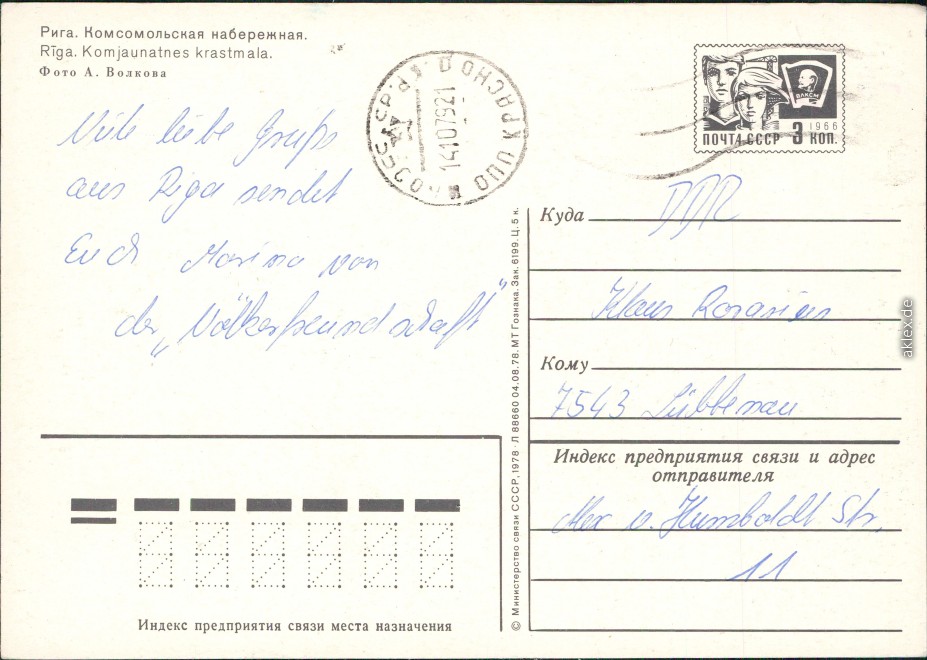 Рига. Комсомольская набережная.
Rīga. Komjaunatnes krastmala.
Фото А. Волкова
Viele liebe Grüße
aus Riga sendet
Euch Marina von
der „Völkerfreundschaft"
14107921
ВЛКСМ
1966
ПОЧТА СССР 3 КОП.
Куда DDR
Klaus
Кому
7543 Lübbenau
Индекс предприятия связи и адрес
отправителя
Alex v. Humboldt Str.
11
Индекс предприятия связи места назначения
© Министерство связи СССР, 1978 · Л 88660 04.08.78. МТ Гознака. Зак. 6199. Ц. 5 к.
aklex.de